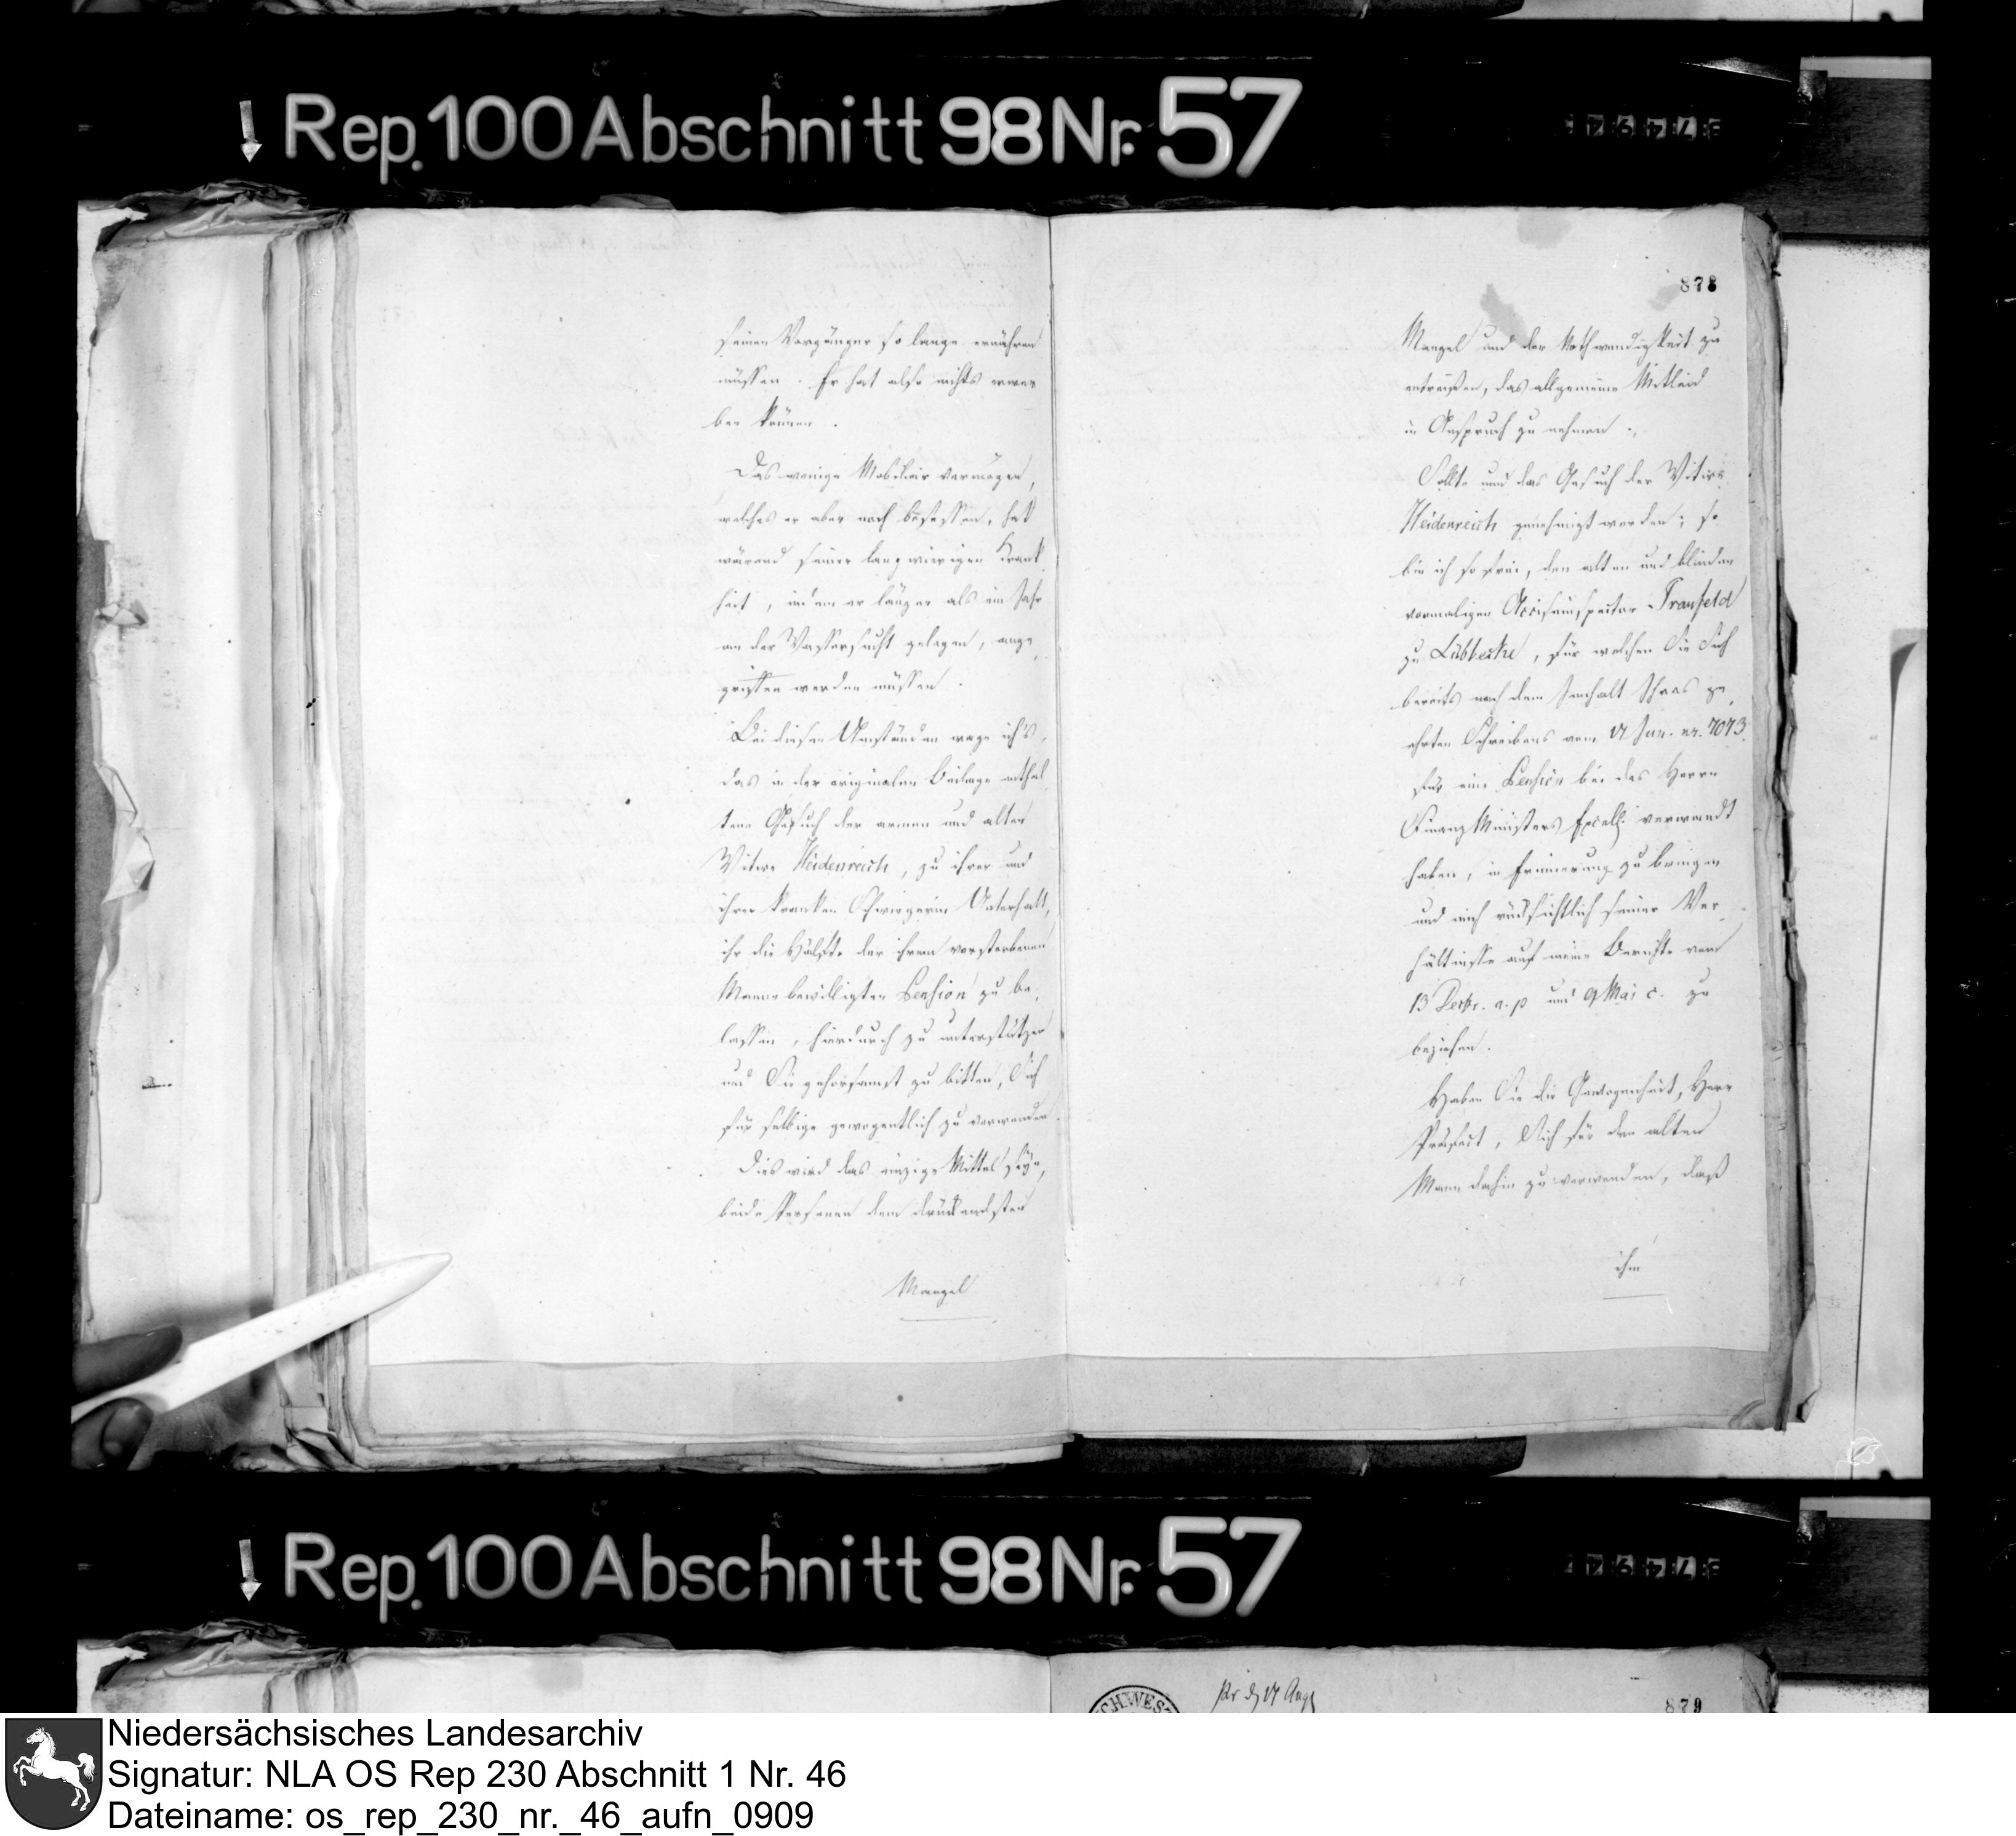 Rep. 100 Abschnitt 98 Nr. 57
seinen Vorgänger so lange ernähren
müssen. Er hat also nichts erwer
ben können.
Das wenige Mobiliar vermögen,
welches er aber noch besessen, hat
wärend seiner langwierigen Krank
heit, indem er länger als ein Jahr
an der Wassersucht gelegen, ange
griffen werden müssen.
Bei diesen Umständen wage ich's,
das in der originalen Beilage enthal
tene Gesuch der armen und alten
Witwe Heidenreich, zu ihrer und
ihrer kranken Schwegerin Unterhalt,
ihr die Hälfte der ihrem verstorbenen
Manne bewilligten Pension zu be
lassen, hierdurch zu unterstützen
und Sie gehorsamst zu bitten, Sich
für selbige gewogentlich zu verwenden.
Dies wird das einzige Mittel seyn,
beide Personen dem drückendsten
Mangel
878
Mangel und der Nothwendigkeit zu
entreißen, das allgemeine Mitleid
in Anspruch zu nehmen.
Sollte nun das Gesuch der Witwe
Heidenreich genehmigt werden; so
bin ich so frei, den alten und blinden
vormaligen Accisinspector Tranfeld
zu Lübbecke, für welchen Sie Sich
bereits nach dem Innhalt Ihres ge
ehrten Schreibens vom 17 Jun. nr. 7073
für eine Pension bei des Herrn
Finanz Ministers Excell. verwandt
haben, in Erinnerung zu bringen
und mich rücksichtlich seiner Ver
hältnisse auf meine Berichte vom
13 Decbr. a. p und 9 Mai c. zu
beziehen.
Haben Sie die Gewogenheit, Herr
Präfect, Sich für den alten
Mann dahin zu verwenden, daß
ihm
Rep. 100 Abschnitt 98 Nr. 57
879
Niedersächsisches Landesarchiv
Signatur: NLA OS Rep 230 Abschnitt 1 Nr. 46
Dateiname: os_rep_230_nr._46_aufn_0909